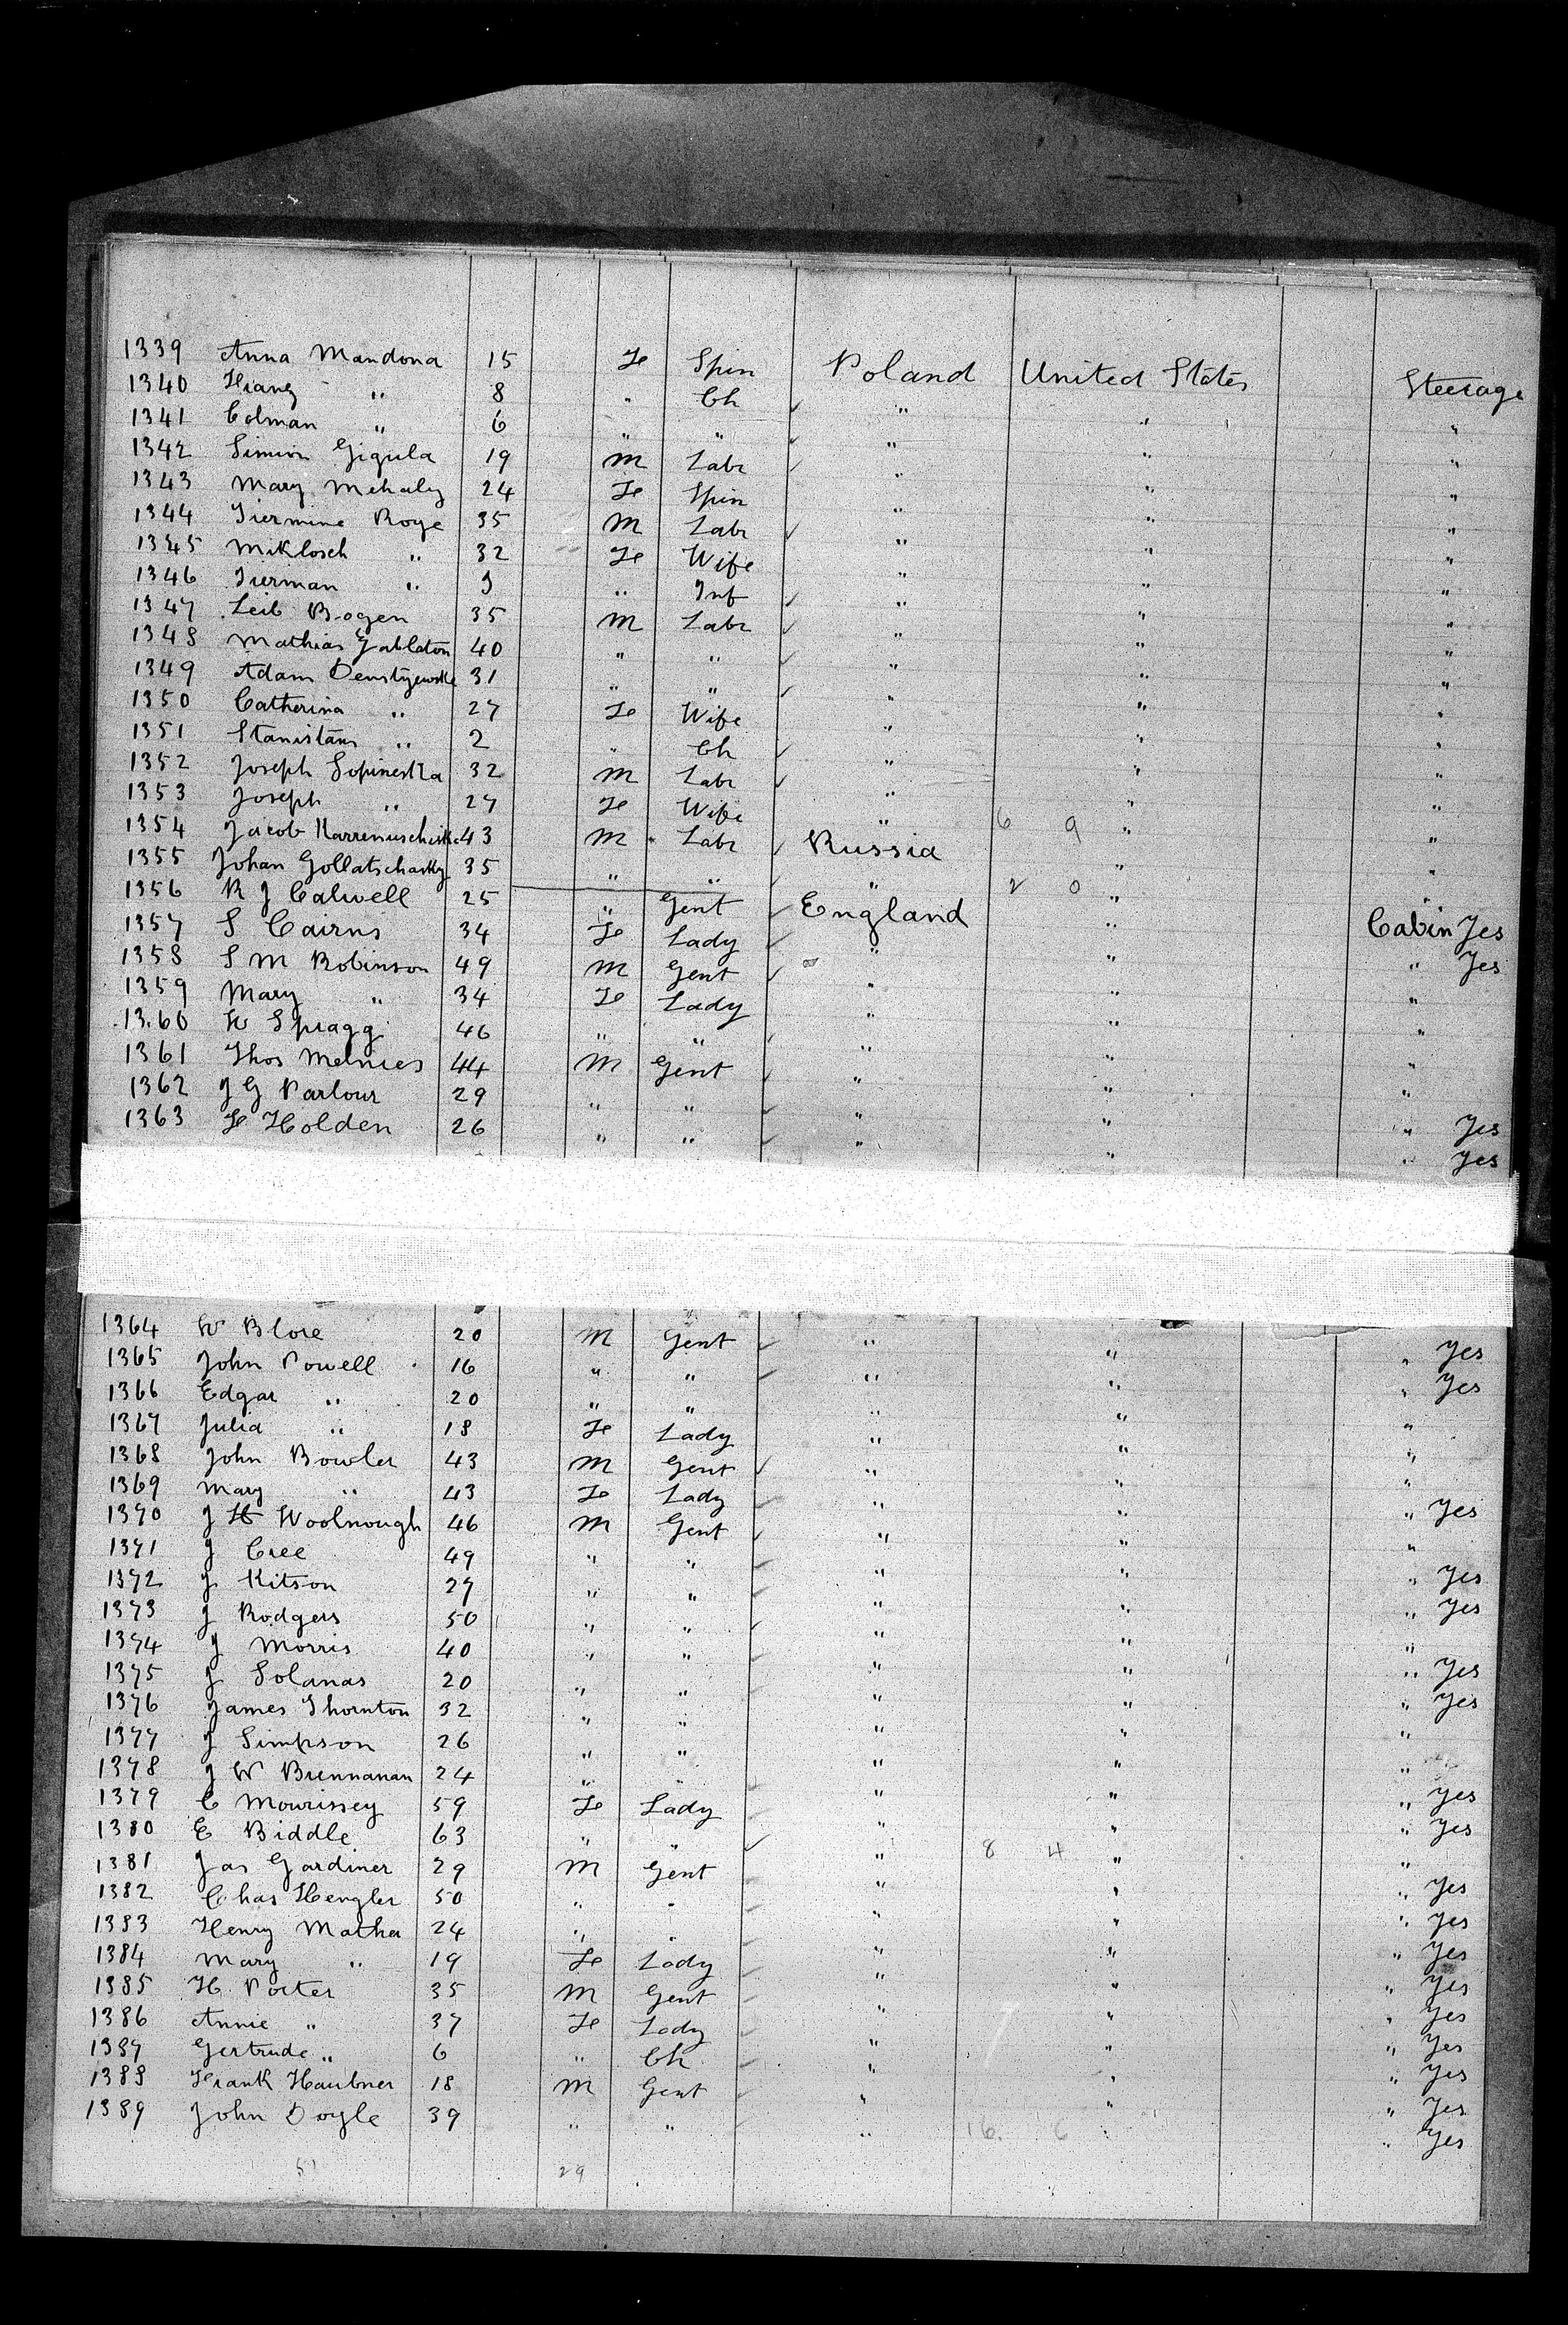 1339 Anna Mandona 15 Fe Spin Poland United States Steerage
1340 Franz " 8 " Ch " " "
1341 Colman " 6 " " " " "
1342 Simion Gigula 19 M Labr " " "
1343 Mary Mehaly 24 Fe Spin " " "
1344 Tiermine Roge 35 M Labr " " "
1345 Miklosch " 32 Fe Wife " " "
1346 Tierman " 9 " Inf " " "
1347 Leib Bogen 35 M Labr " " "
1348 Mathias Gableton 40 " " " " "
1349 Adam 31 " " " " "
1350 Catherina " 27 Fe Wife " " "
1351 Stanistaus " 2 " Ch " " "
1352 Joseph Sopinestka 32 M Labr " " "
1353 Joseph " 27 Fe Wife " 6 9 " "
1354 Jacob 43 M Labr Russia " "
1355 Johan 35 " " " 2 0 " "
1356 R J Calwell 25 " Gent England " Cabin Yes
1357 S Cairns 34 Fe Lady " " " Yes
1358 S M Robinson 49 M Gent " " "
1359 Mary " 34 Fe Lady " " "
1360 W Spragg 46 " " " " "
1361 Thos 44 M Gent " " "
1362 J G Parlour 29 " " " " " Yes
1363 F Holden 26 " " " " " Yes
1364 W Blore 20 M Gent " " " Yes
1365 John Powell 16 " " " " " Yes
1366 Edgar " 20 " " " " "
1367 Julia " 18 Fe Lady " " "
1368 John Bowler 43 M Gent " " "
1369 Mary " 43 Fe Lady " " " Yes
1370 J H Woolnough 46 M Gent " " "
1371 J Cree 49 " " " " " Yes
1372 J Kitson 27 " " " " " Yes
1373 J Rodgers 50 " " " " "
1374 J Morris 40 " " " " " Yes
1375 J Solanas 20 " " " " " Yes
1376 James Thornton 32 " " " " "
1377 J Simpson 26 " " " " "
1378 J W Brennanan 24 " " " " " Yes
1379 C Mourissey 59 Fe Lady " " " Yes
1380 E Biddle 63 " " " 8 4 " "
1381 Jas Gardiner 29 M Gent " " " Yes
1382 Chas Hengler 50 " " " " " Yes
1383 Henry Mather 24 " " " " " Yes
1384 Mary " 19 Fe Lady " " " Yes
1385 H. Porter 35 M Gent " " " Yes
1386 Annie " 37 Fe Lady " " " Yes
1387 Gertrude " 6 " Ch " " " Yes
1388 Frank Haubner 18 M Gent " " " Yes
1389 John Doyle 39 " " " 16 6 " " Yes
51 29